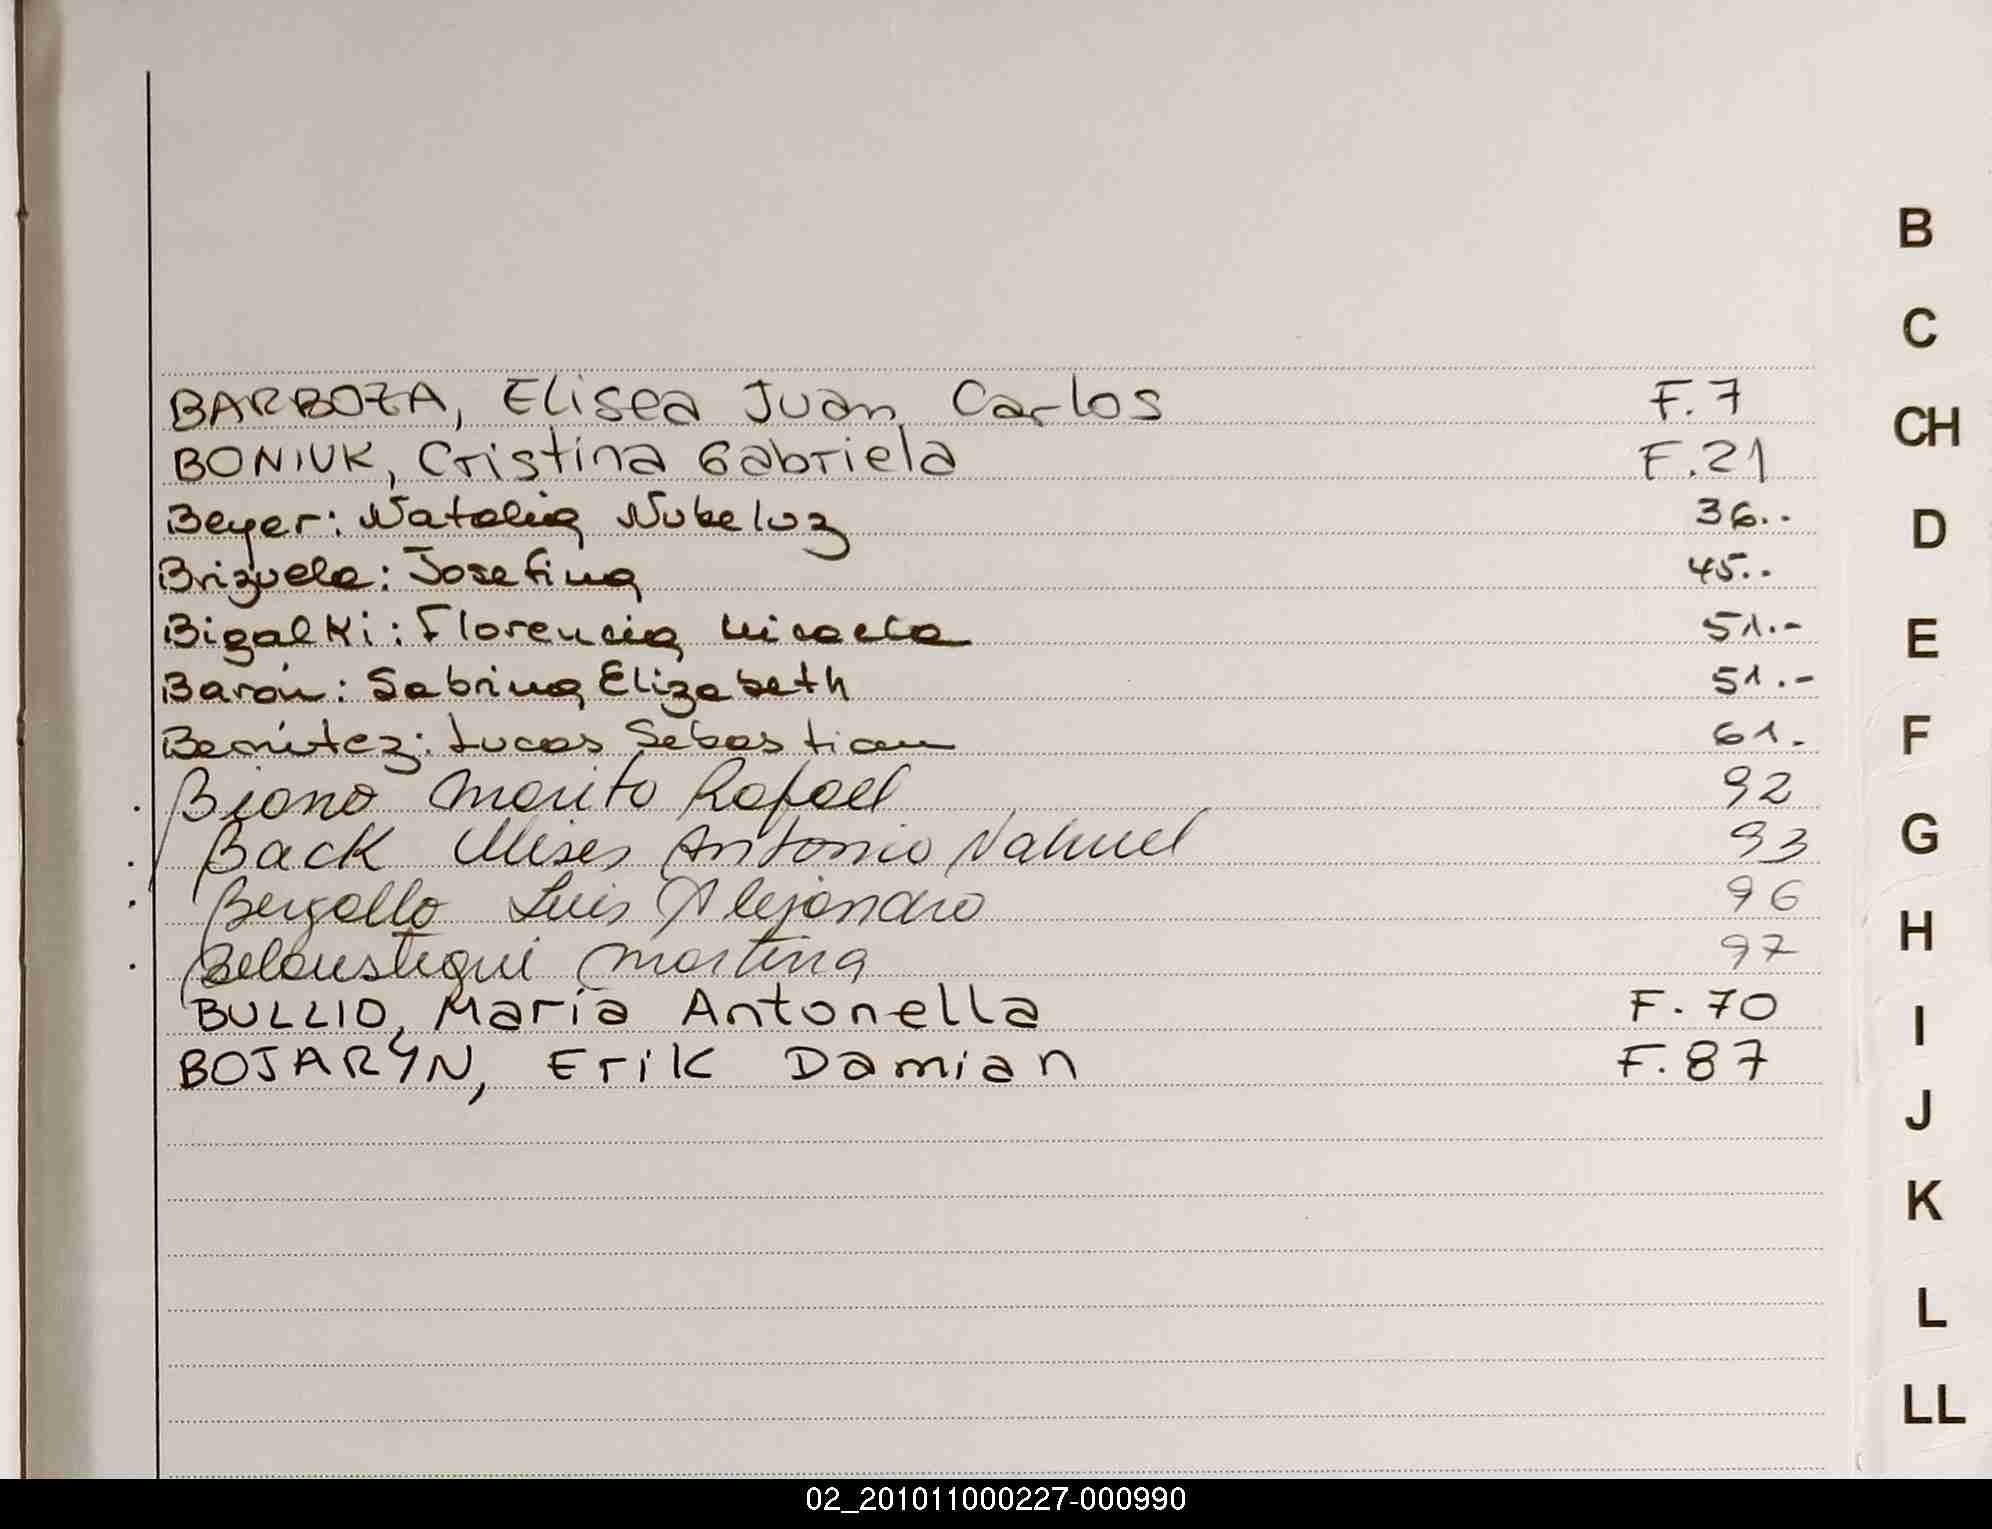 BARBOZA, Elisea Juan Carlos F.7
BONIUK, Cristina Gabriela F.21
Beyer: Natalia Nubeluz 36..
Brizuela: Josefina 45..
Bigalki: Florencia Micaela 51.-
Barón: Sabrina Elizabeth 51.-
Benitez: Lucas Sebastian 61.
. Biono Marito Rafael 92
. Back Ulises Antonio Nahuel 93
. Bergallo Luis Alejandro 96
. Belaustegui Martina 97
BULLIO, Maria Antonella F. 70
BOJARYN, Erik Damian F. 87
B
C
CH
D
E
F
G
H
I
J
K
L
LL
02_201011000227-000990